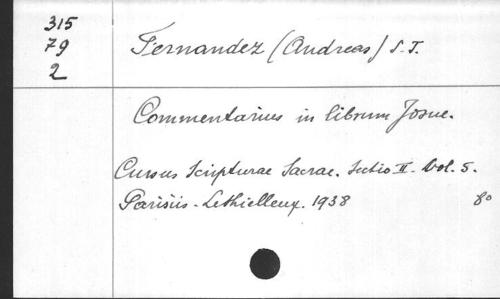 315
79
2
Fernandez (Andreas) S. J.
Commentarius in librum Josue.
Cursus Scripturae Sacrae. Sectio II - Vol. 5.
Parisiis - Lethielleux. 1938 8o